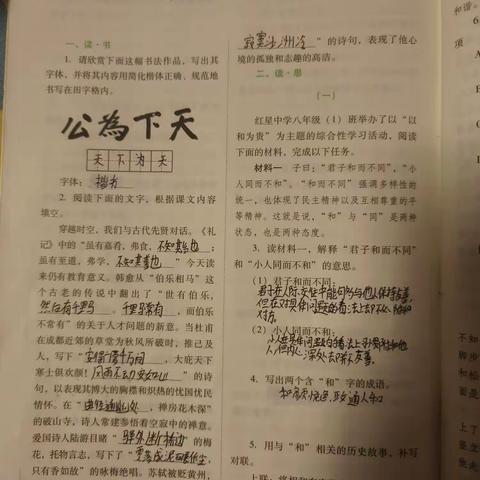 一、读·书
1. 请欣赏下面这幅书法作品，写出其
字体，并将其内容用简化楷体正确、规范地
书写在田字格内。
公為下天
天下为天
字体：楷书
2. 阅读下面的文字，根据课文内容
填空。
穿越时空，我们与古代先贤对话。《礼
记》中的“虽有嘉肴，弗食，不知其旨也；
虽有至道，弗学，不知其善也”今天读
来仍有教育意义。韩愈从“伯乐相马”这
个古老的传说中翻出了“世有伯乐，
然后有千里马。千里马常有，而伯乐
不常有”的关于人才问题的新意。当杜甫
在成都近郊的草堂为秋风所破时，推己及
人，写下“安得广厦千万间，大庇天下
寒士俱欢颜！风雨不动安如山”的诗
句，以表现其博大的胸襟和炽热的忧国忧民
情怀。在“曲径通幽处，禅房花木深”
的破山寺，诗人常建参悟着空寂中的禅意。
爱国诗人陆游目睹“驿外断桥边”的梅
花，托物言志，写下了“零落成泥碾作尘，
只有香如故”的咏梅绝唱。苏轼被贬黄州，
寂寞沙洲冷”的诗句，表现了他心
境的孤独和志趣的高洁。
二、读·思
（一）
红星中学八年级（1）班举办了以“以
和为贵”为主题的综合性学习活动，阅读
下面的材料，完成以下任务。
材料一 子曰：“君子和而不同”，“小
人同而不和”。“和而不同”强调多样性的
统一，也体现了民主精神以及互相尊重的平
等精神。这就是说，“和”与“同”是两种
状态，也是两种态度。
3. 读材料一，解释“君子和而不同”
和“小人同而不和”的意思。
（1）君子和而不同：
君子在人际交往中能够与他人保持友善，
但在对具体问题的看法上却不必附和
对方。
（2）小人同而不和：
小人也具体问题的看法上附和他
人，但内心深处却不友善。
4. 写出两个含“和”字的成语。
和颜悦色 政通人和
5. 用与“和”相关的历史故事，补写
对联。